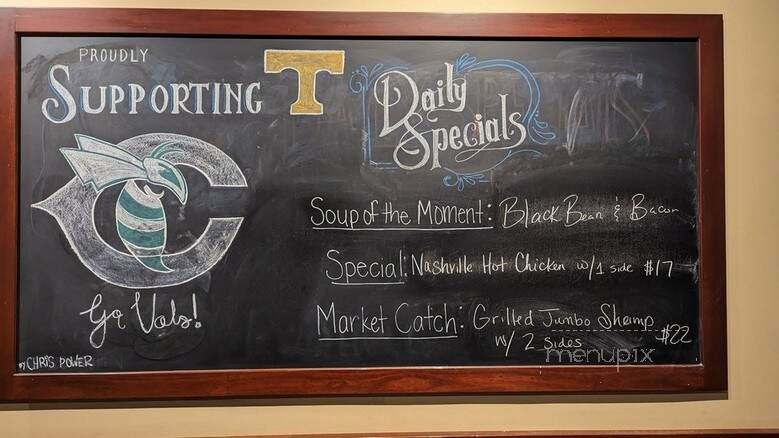 PROUDLY
SUPPORTING
T
C
Go Vols!
BY CHRIS POWER
Daily
Specials
Soup of the Moment: Black Bean & Bacon
Special: Nashville Hot Chicken w/1 side $17
Market Catch: Grilled Jumbo Shrimp
w/ 2 sides $22
menupix